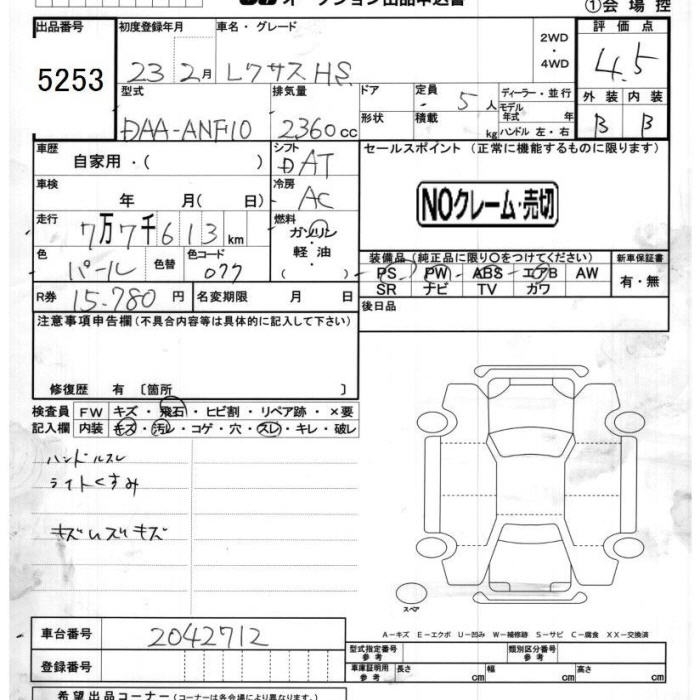 オークション出品申込書
①会場控
出品番号 初度登録年月 車名・グレード 2WD・4WD 評価点
5253 23 2月 レクサスHS 4.5
型式 排気量 ドア 定員 ディーラー・並行 外装 内装
DAA-ANF10 2360cc 5人 モデル年式 年 B B
形状 積載 kg ハンドル 左・右
車歴 シフト セールスポイント(正常に機能するものに限ります)
自家用・( ) DAT
車検 冷房
年 月(日) AC NOクレーム・売切
走行 燃料
7万7千613km ガソリン
軽油
( )
色 色替 色コード 装備品(純正品に限り○をつけてください) 新車保証書
パール 077 PS PW ABS エアB AW 有・無
SR ナビ TV カワ
R券 15.780円 名変期限 月 日 後日品
注意事項申告欄(不具合内容等は具体的に記入して下さい)
修復歴 有〔箇所 〕
検査員 FW キズ・飛石・ヒビ割・リペア跡・×要
記入欄 内装 キズ・汚レ・コゲ・穴・スレ・キレ・破レ
ハンドルスレ
ライトくすみ
キズムズリキズ
スペア
A-キズ E-エクボ U-凹み W-補修跡 S-サビ C-腐食 XX-交換済
車台番号 2042712
型式指定番号 参考 類別区分番号 参考
登録番号 車庫証明用 参考 長さ cm 幅 cm 高さ cm
希望出品コーナー(コーナーは各会場により異なります。)